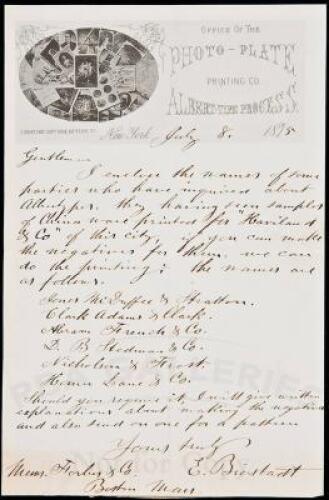 OFFICE OF THE
PHOTO-PLATE
PRINTING CO.
ALBERT-TYPE PROCESS.
New York July 8. 1875
Gentlemen
I enclose the names of some
parties who have inquired about
Albertypes. they having seen samples
of China ware printed for "Haviland
& Co" of this city, if you can make
the negatives for them, we can
do the printing: the names are
as follows.
Jones McDuffee & Stratton.
Clark Adams & Clark.
Abram French & Co.
D. B Stedman & Co.
Nicholson & Frost.
Homer Lane & Co.
Should you require it, I will give written
explanations about making the negatives
and also send on one for a pattern
Yours truly
E. Bierstadt
Messrs Forbes & Co.
Boston Mass